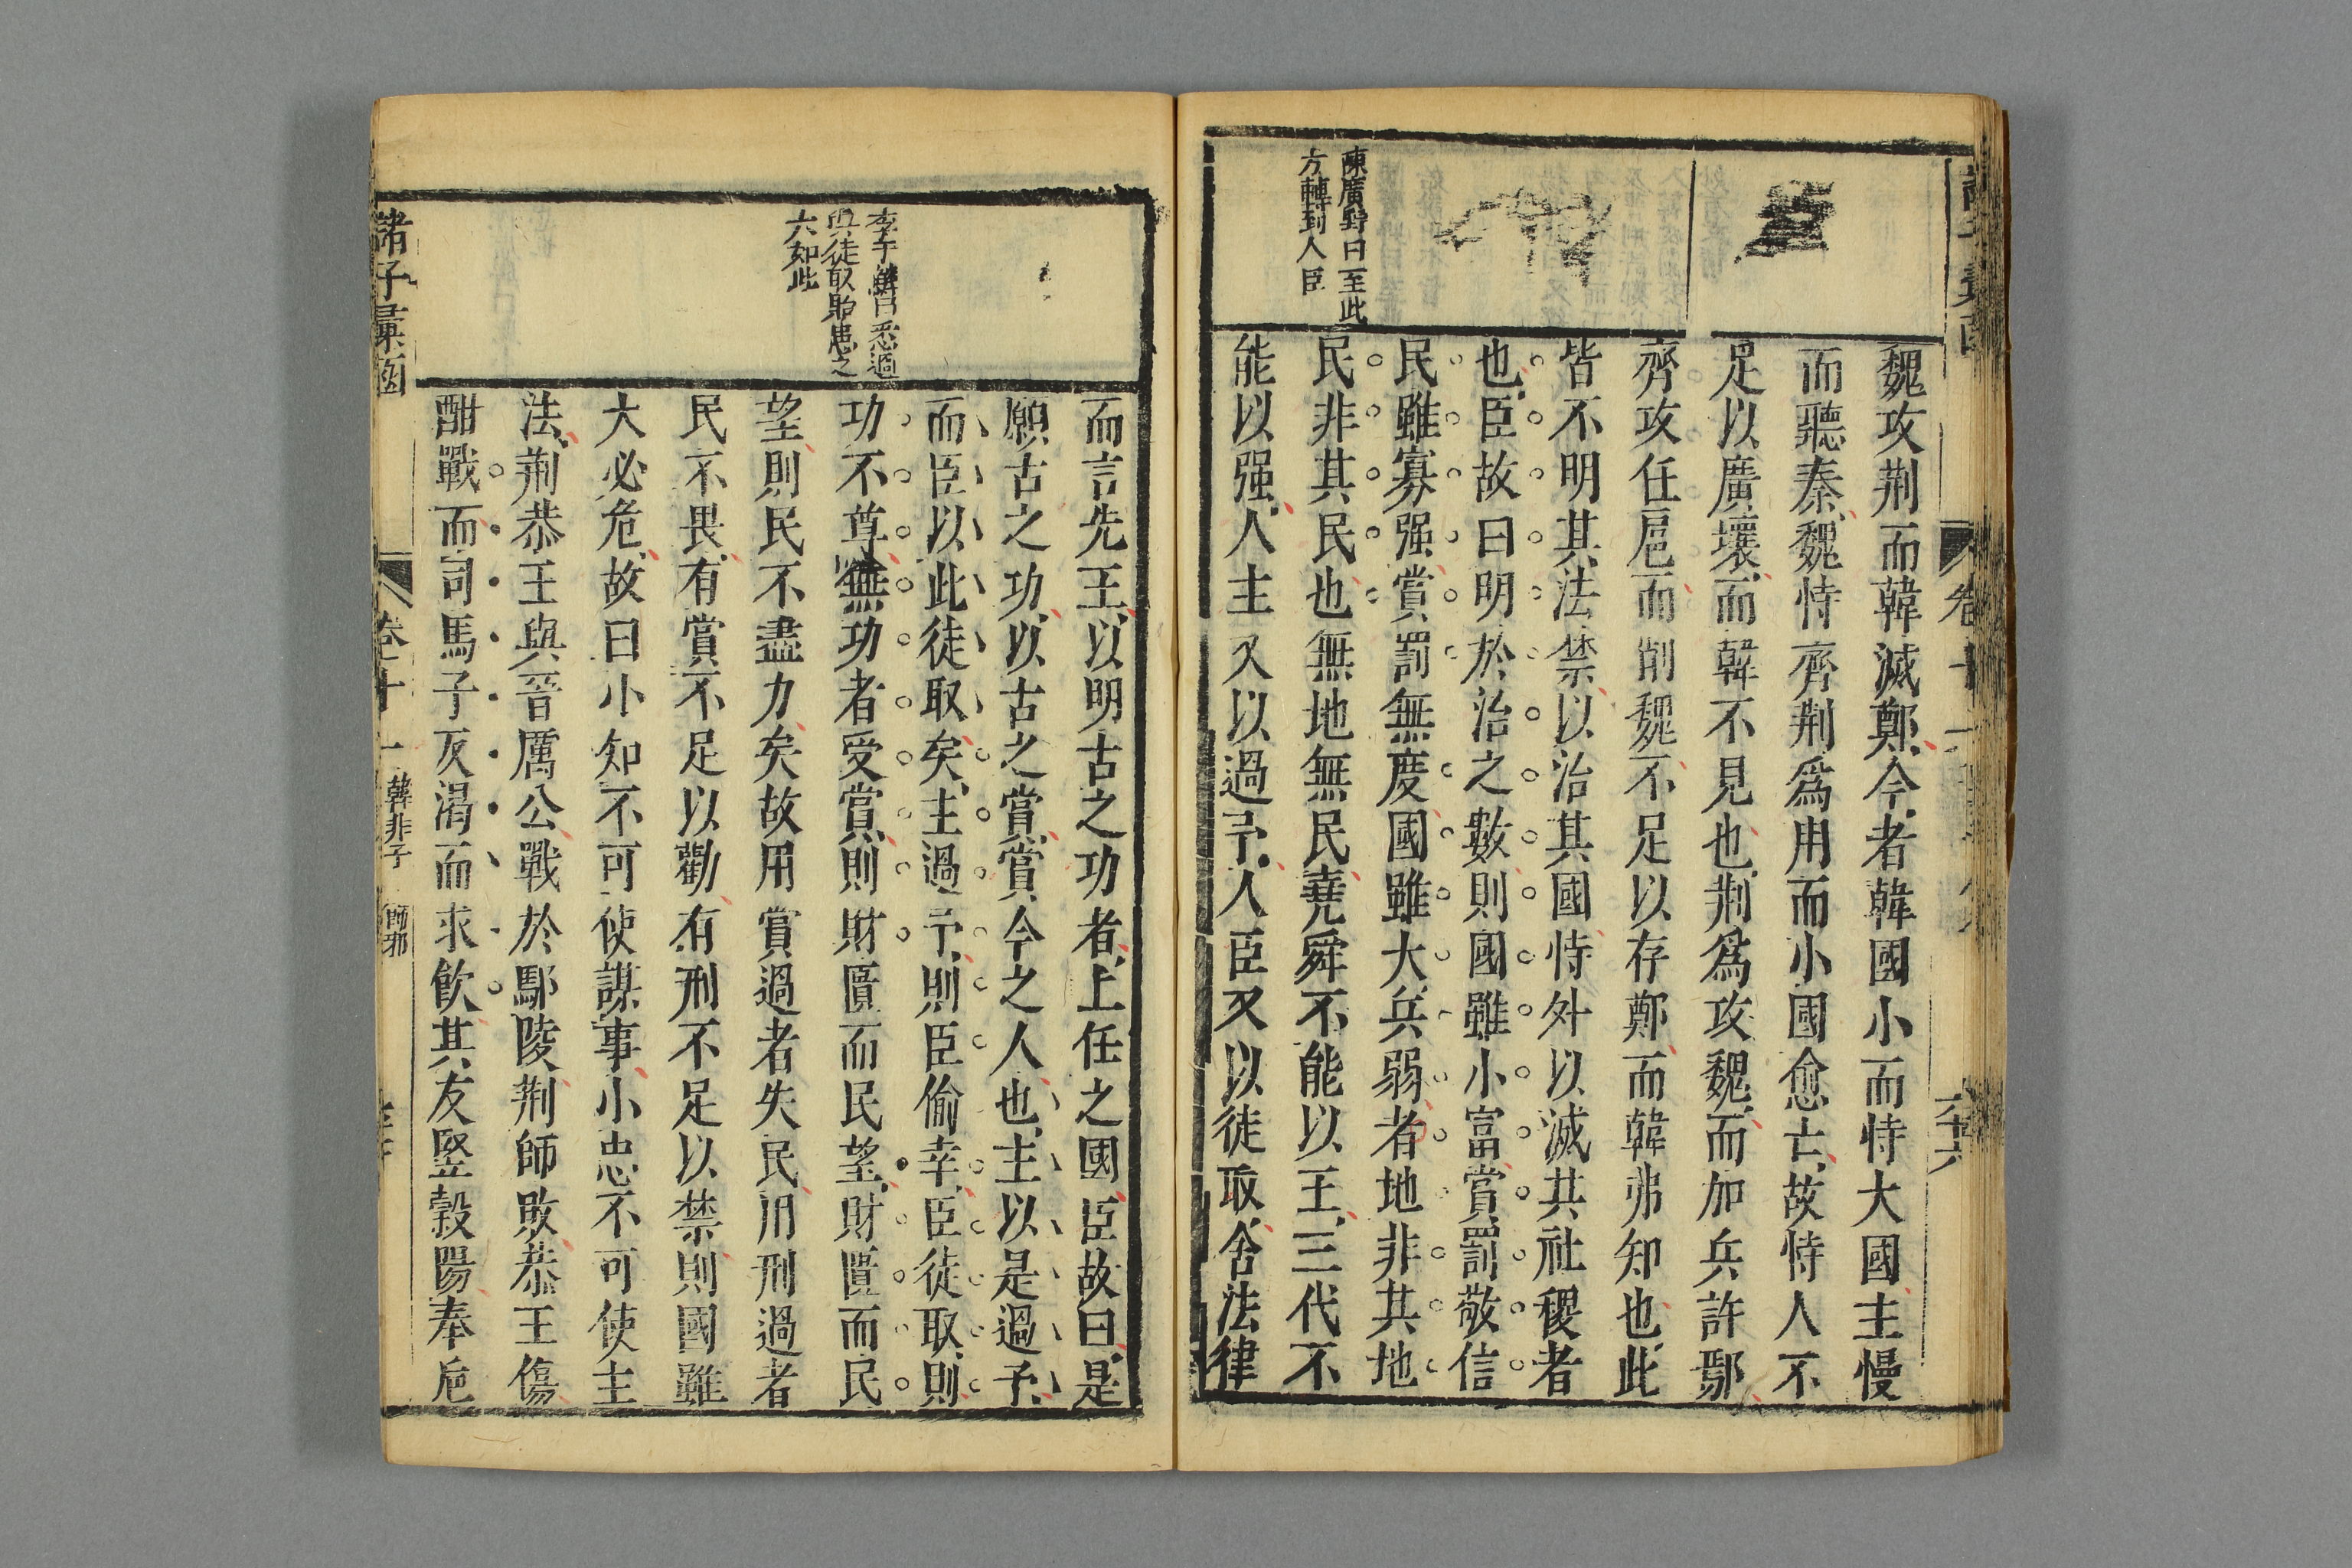 陳廣野曰至此
方轉到人臣
魏攻荆而韓滅鄭今者韓國小而恃大國主慢
而聽秦魏恃齊荆爲用而小國愈亡故恃人不
足以廣壤而韓不見也荆爲攻魏而加兵許鄢
齊攻任扈而削魏不足以存鄭而韓弗知也此
皆不明其法禁以治其國恃外以滅其社稷者
也臣故曰明於治之數則國雖小富賞罰敬信
民雖寡强賞罰無度國雖大兵弱者地非其地
民非其民也無地無民堯舜不能以王三代不
能以强人主又以過予人臣又以徒取舍法律
而言先王以明古之功者上任之國臣故曰是
願古之功以古之賞賞今之人也主以是過予
而臣以此徒取矣主過予則臣偷幸臣徒取則
功不尊無功者受賞則財匱而民望財匱而民
望則民不盡力矣故用賞過者失民用刑過者
民不畏有賞不足以勸有刑不足以禁則國雖
大必危故曰小知不可使謀事小忠不可使主
法荆恭王與晉厲公戰於鄢陵荆師敗恭王傷
酣戰而司馬子反渴而求飲其友竪穀陽奉卮
與徒取貽患之
大如此
諸子彙函
卷十一
韓非子
飾邪